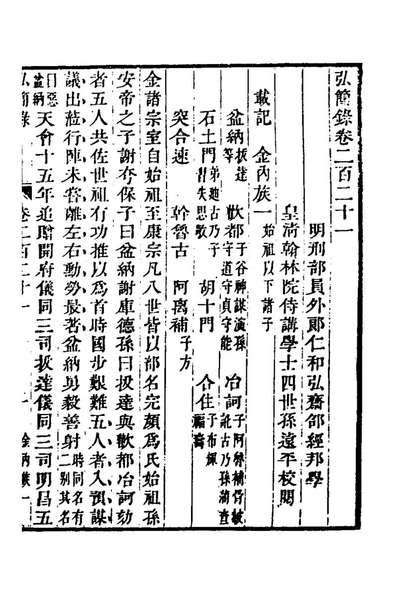 弘簡錄卷二百二十一
明刑部員外郞仁和弘齋邵經邦學
皇淸翰林院侍講學士四世孫遠平校閱
載記 金內族一 始祖以下諸子
盆納 拔達等 歡都 子谷神 謀演 孫守道 守貞 守能 冶訶 子阿魯補 骨赧 訛古乃 孫蒲查
石土門 弟迪古乃 子習失 思敬 胡十門 合住 子布輝 福壽
突合速 幹魯古 阿离補 子方
金諸宗室自始祖至康宗凡八世皆以部名完顏爲氏始祖孫
安帝之子謝夷保子曰盆納謝庫德孫曰拔達與歡都冶訶劾
者五人共佐世祖有功推以爲首時國步艱難五人者入預謀
議出蒞行陣未嘗離左右勳勞最著盆納勇毅善射 時同名有二別其名
曰惡盆納 天會十五年追贈開府儀同三司拔達儀同三司明昌五
弘簡錄 卷二百二十一 一